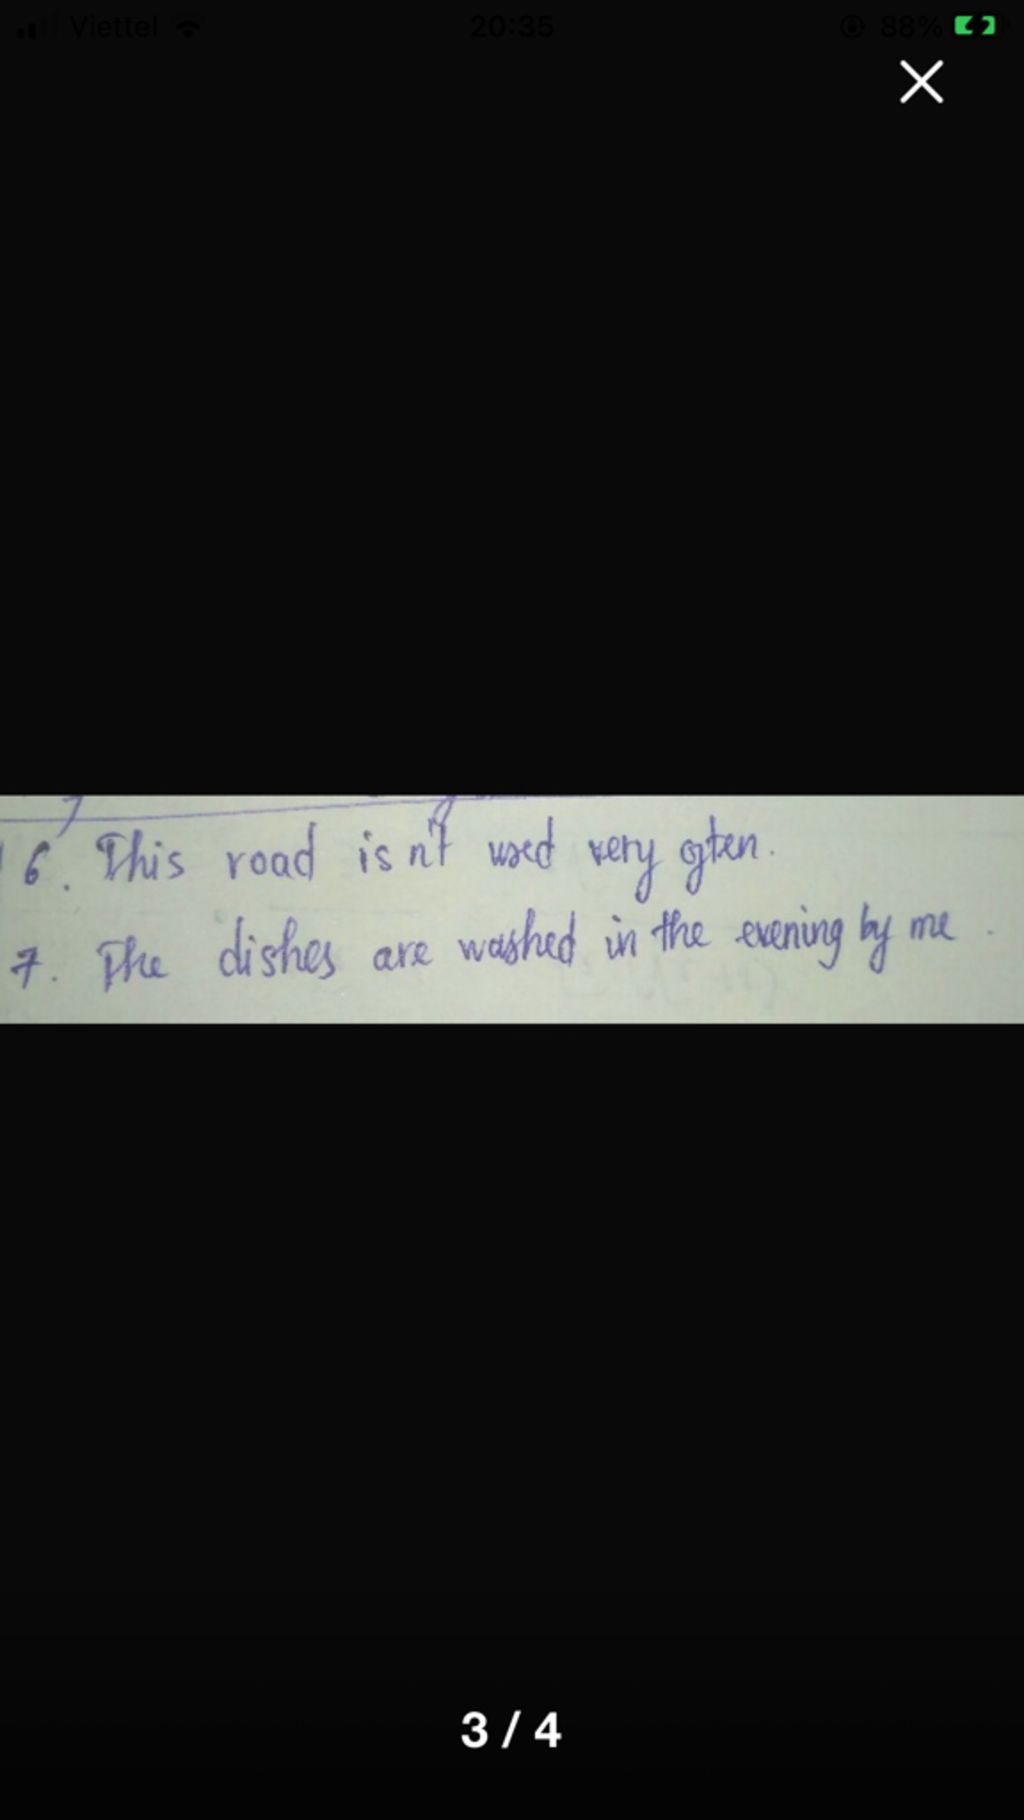 Viettel 20:35 88%
6. This road isn't used very often.
7. The dishes are washed in the evening by me.
3 / 4